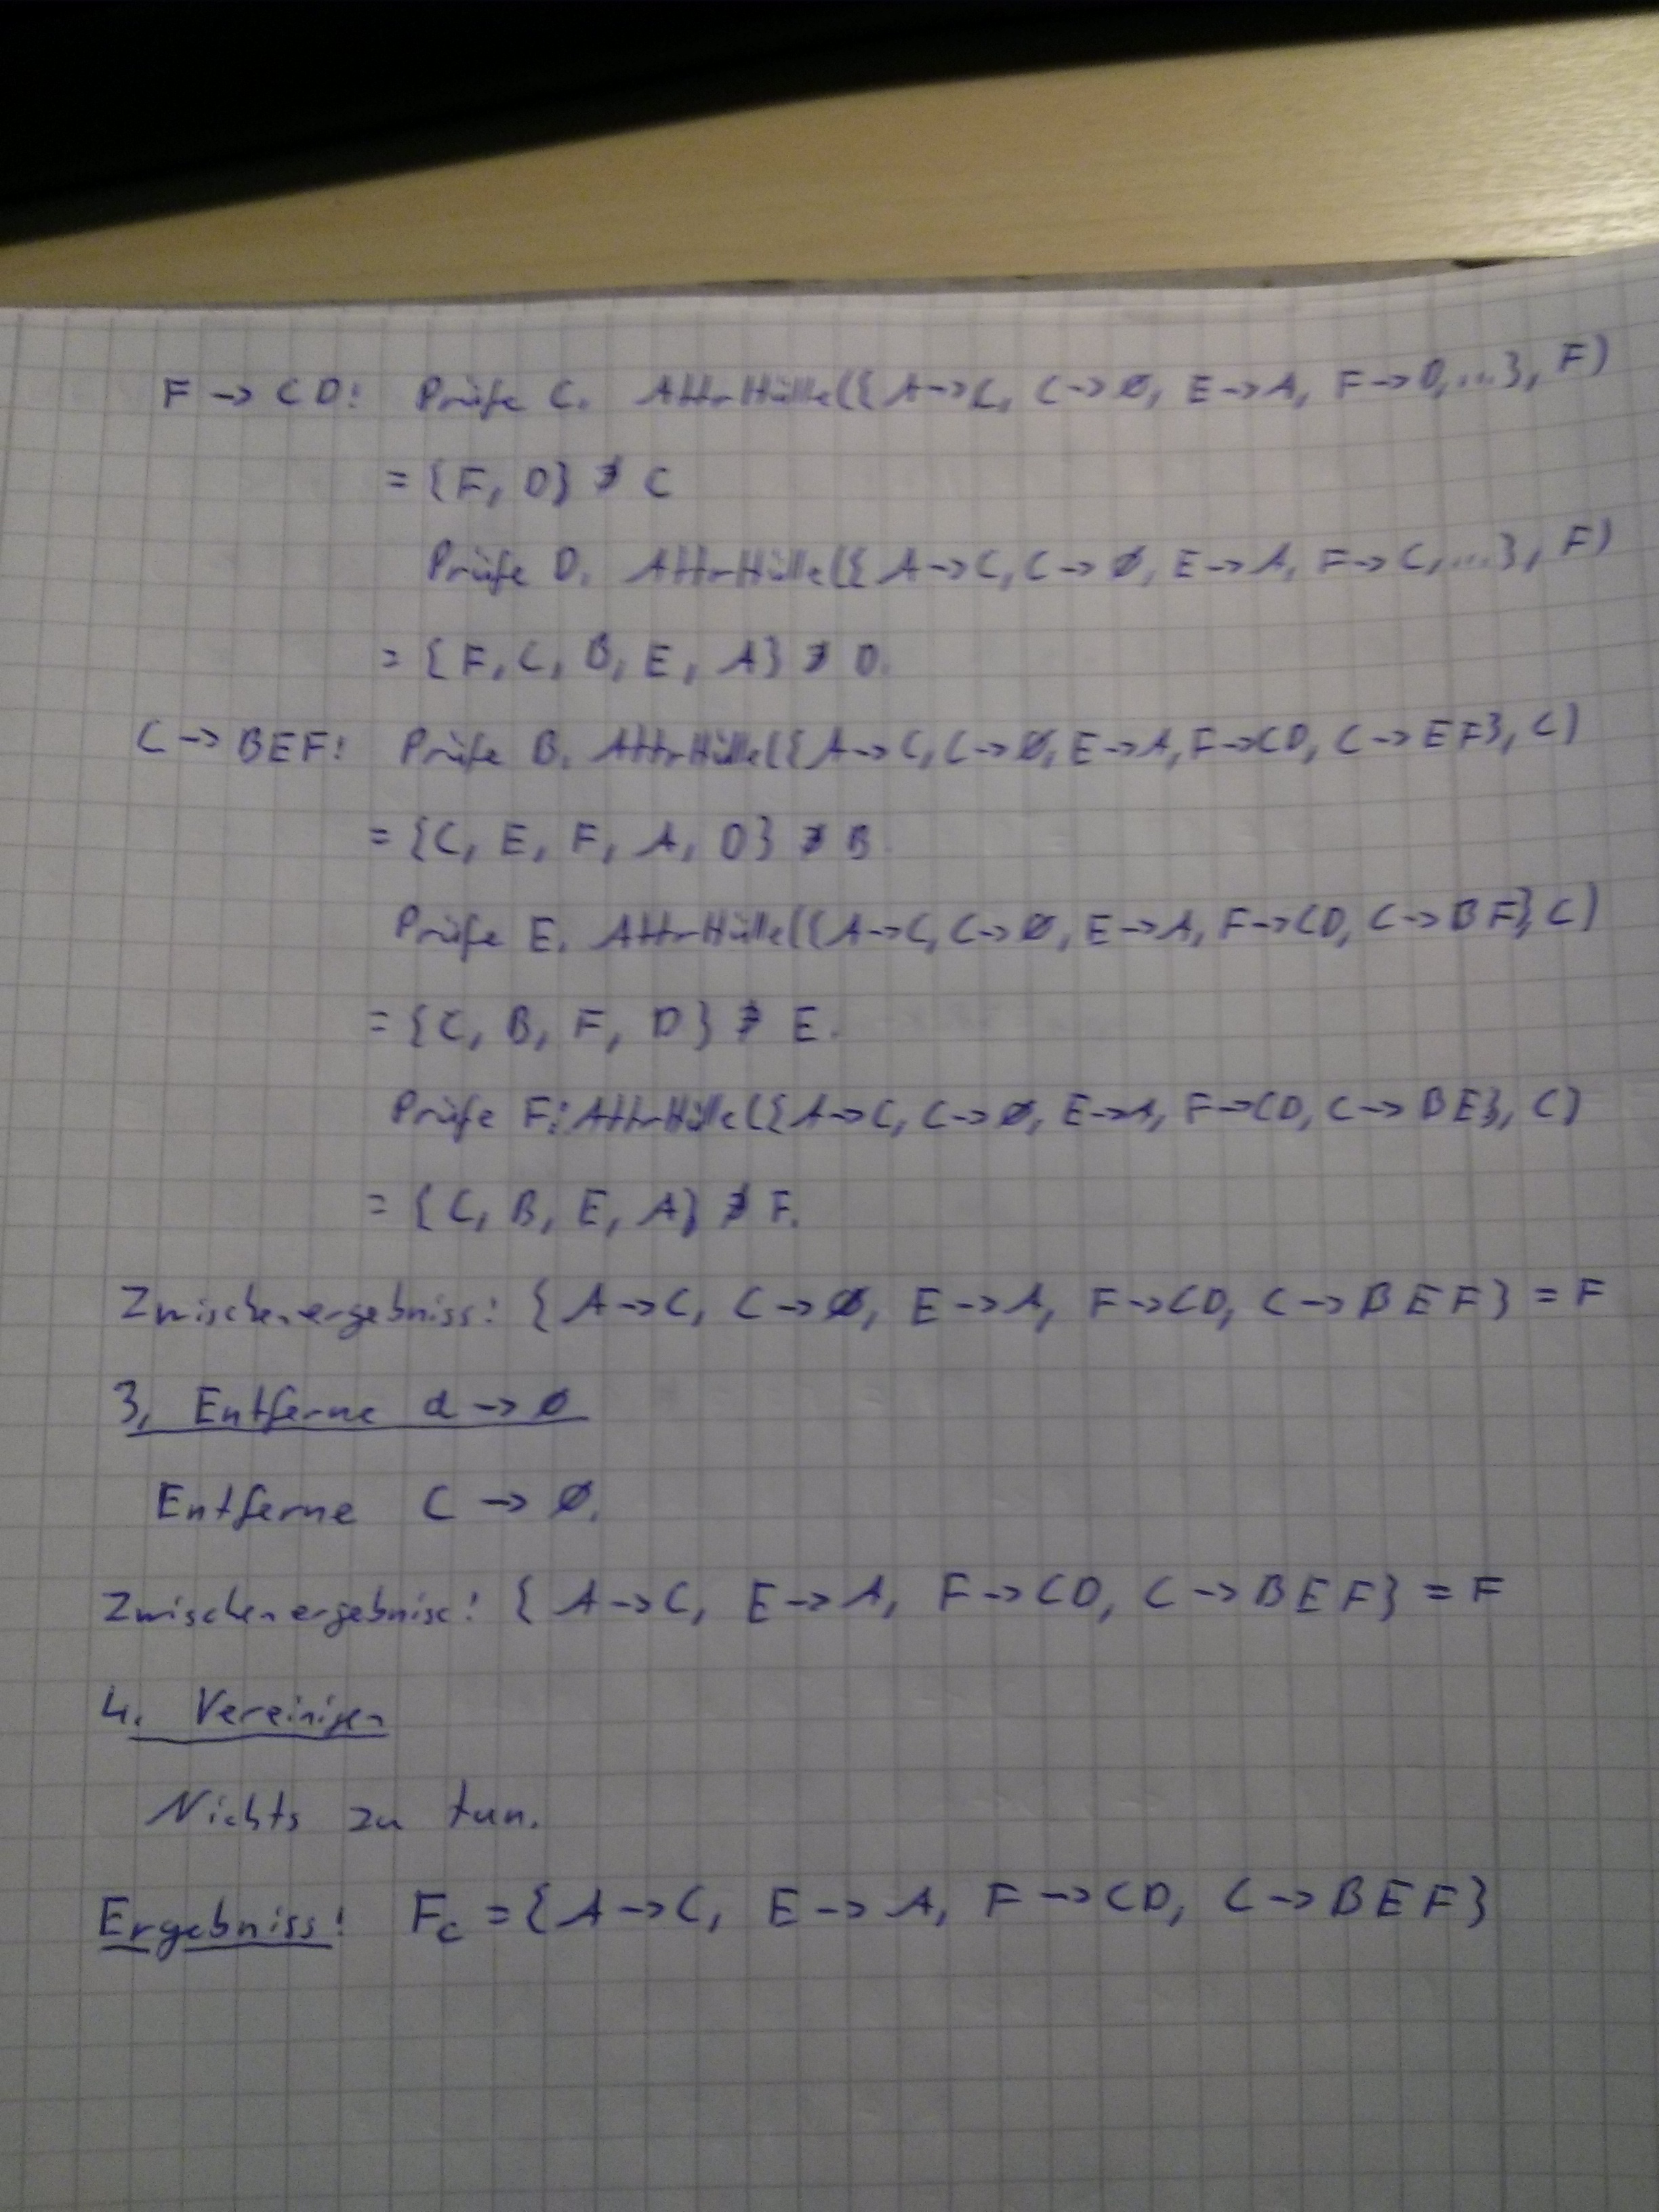 F → CD: Prüfe C. AttrHülle({A→C, C→Ø, E→A, F→D,...}, F)
= {F, D} ∌ C
Prüfe D. AttrHülle({A→C, C→Ø, E→A, F→C,...}, F)
= {F, C, B, E, A} ∌ D.
C → BEF: Prüfe B. AttrHülle({A→C, C→Ø, E→A, F→CD, C→EF}, C)
= {C, E, F, A, D} ∌ B.
Prüfe E. AttrHülle({A→C, C→Ø, E→A, F→CD, C→BF}, C)
= {C, B, F, D} ∌ E.
Prüfe F: AttrHülle({A→C, C→Ø, E→A, F→CD, C→BE}, C)
= {C, B, E, A} ∌ F.
Zwischenergebniss: {A→C, C→Ø, E→A, F→CD, C→BEF} = F
3. Entferne α → Ø
Entferne C → Ø.
Zwischenergebniss: {A→C, E→A, F→CD, C→BEF} = F
4. Vereinigen
Nichts zu tun.
Ergebniss: Fc = {A→C, E→A, F→CD, C→BEF}